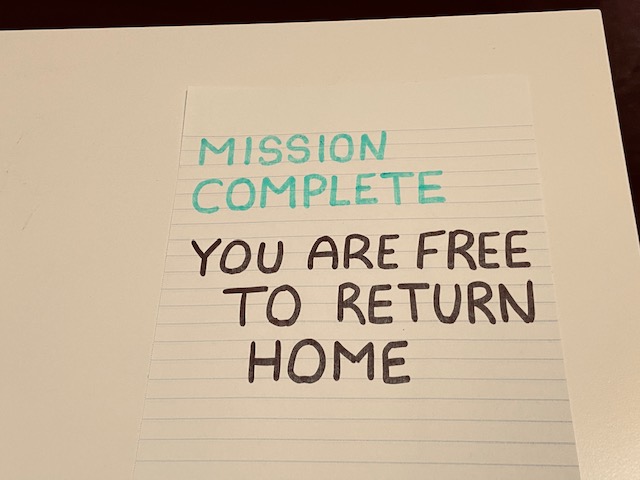 MISSION
COMPLETE
YOU ARE FREE
TO RETURN
HOME